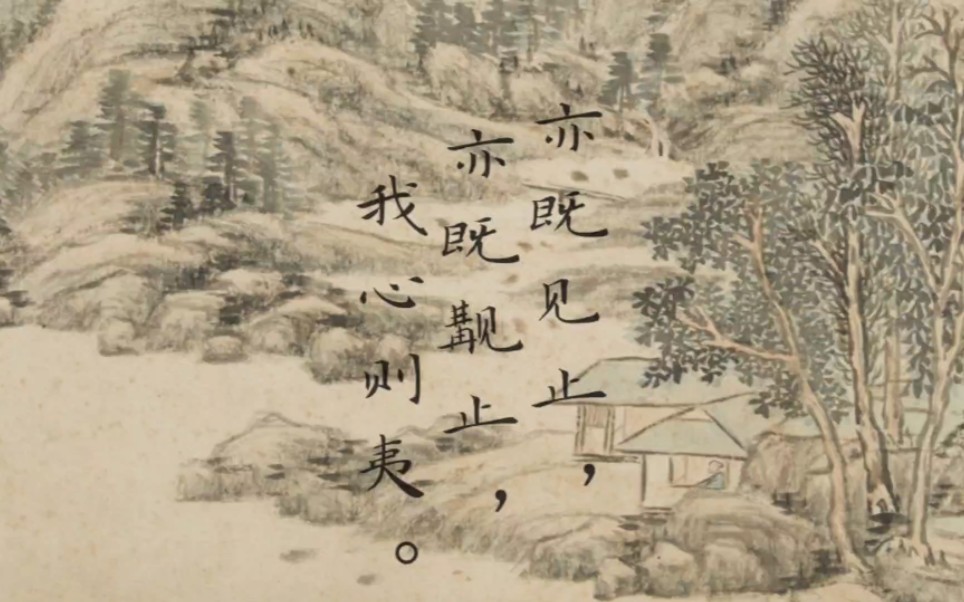 亦既见止，
亦既觏止，
我心则夷。